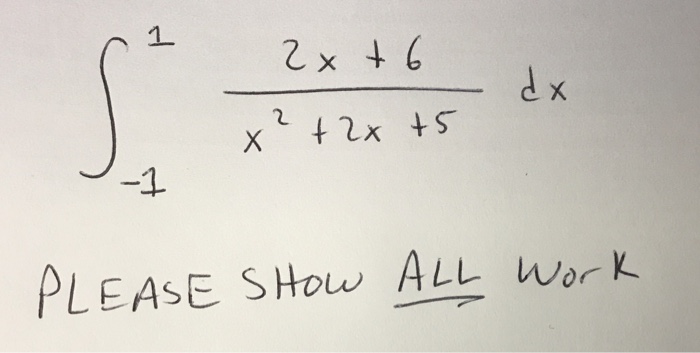 ∫₋₁¹ (2x + 6)/(x² + 2x + 5) dx
PLEASE SHOW ALL WORK